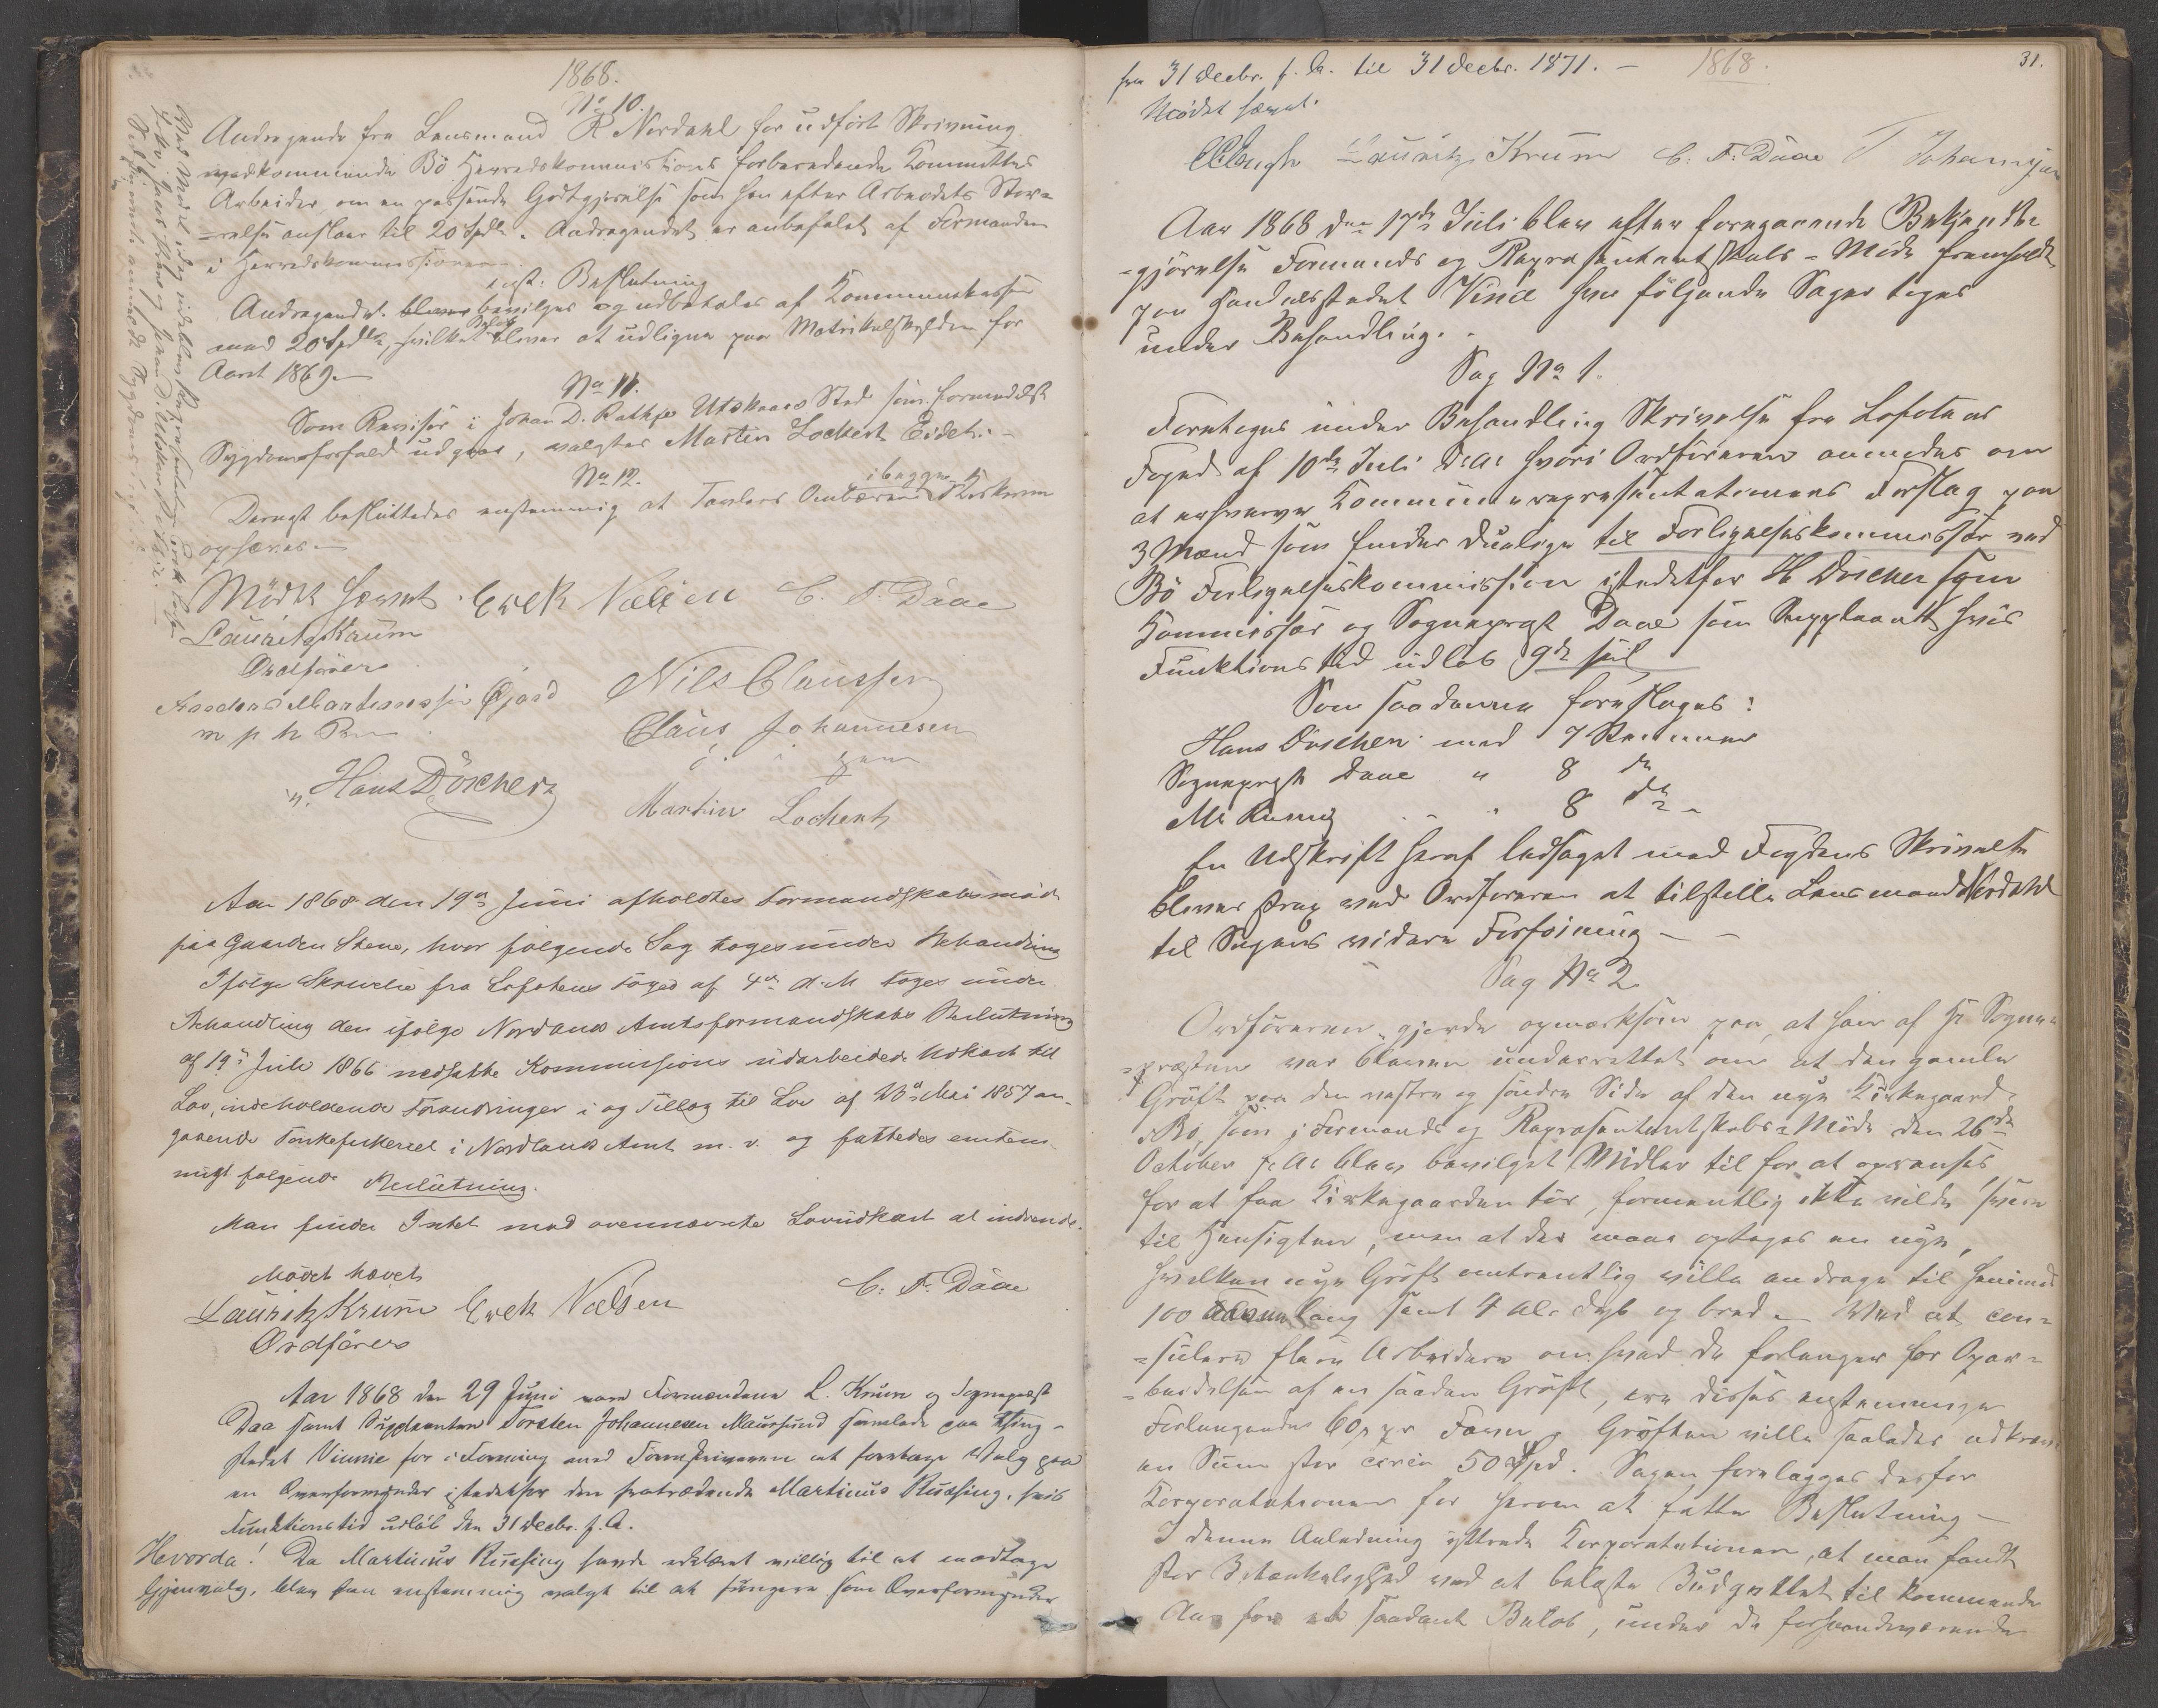 1868.
No 10.
Andragende fra Lensmand R Nordahl for udført Skrivning
vedkommende Bö Herredskommissions forberedende Kommittes
Arbeider, om en passende Godtgjörelse som han efter Arbeidets Stör=
=relse anslaar til 20 Spdlr. Andragendet er anbefalet af Formanden
i Herredskommissionen.
enst: Beslutning
Andragendet bevilges og udbetales af Kommunekassen
med 20 Spdlr, hvilket Beløb bliver at udligne paa Matrikulskylden for
Aaret 1869.
No 11.
Som Revisor i Johan D. Rathje Utskaars Sted som formedelst
Sygdomsforfald udgaar, valgtes Martin Lockert Eidet.
No 12.
i begge
Dernest besluttedes enstemmig at Ombæren
ophæves.
Mödet hævet. Erek Nælsen C. F. Daae
Lauritz Krum
Ordförer
Nils Claussen
Anders Martinussen Gjærd
m p h Pen
Claus Johannesen
Hans Döscher
Martin Lockert
Aar 1868 den 19de Juni afholdtes Formandskabsmöde
paa Gaarden Steene, hvor følgende Sag toges under Behandling
Ifølge Skrivelse fra Lofotens Foged af 4de d. M. toges under
Behandling den ifølge Nordlands Amtsformandskabs Beslutning
af 19de Juli 1866 nedsatte Kommissions udarbeidede Udkast til
Lov, indeholdende Forandringer i og Tillæg til Lov af 23de Mai 1857 an-
gaaende Torskefiskeriet i Nordlands Amt m. v. og fattedes enstem-
migt følgende Beslutning.
Man finder Intet mod ovennævnte Lovudkast at indvende.
Mödet hævet
Lauritz Krum Erek Nælsen C. F. Daae
Ordförer
Aar 1868 den 29 Juni vare Formændene L. Krum og Sognepræst
Daa samt Suppleanten Torsten Johannesen Maursund samlede paa Thing-
stedet Vinnie for i Forening med Sorenskriveren at foretage Valg paa
en Overformynder istedetfor den fratrædende Martinus Ruesing, hvis
Funktionstid udløb den 31 Decbr. f. A.
Hvorda! Da Martinus Ruesing havde erklæret villig til at modtage
Gjenvalg, blev han enstemmig valgt til at fungere som Overformynder
fra 31 Decbr. f. A. til 31 Decbr. 1871. — 1868. 31.
Mödet hævet.
Lauritz Krum C. F. Daae T Johannesen
Aar 1868 den 17de Juli blev efter foregaaende Bekjendt-
=gjörelse Formands og Repræsentantskabs-Möde fremholdt
paa Handelsstedet Vinie hvor følgende Sager toges
under Behandling.
Sag No 1.
Foretoges under Behandling Skrivelse fra Lofotens
Foged af 10de Juli d. A. hvori Ordföreren anmodes om
at erhverve Kommunerepræsentationens Forslag paa
3 Mænd som findes duelige til Forligelseskommissær ved
Bö Forligelseskommission istedetfor H Döscher som
Kommissær og Sognepræst Daae som Suppleant hvis
Funktionstid udløb 9de Juli
Som saadanne foresloges:
Hans Döscher med 7 Stemmer
Sognepræst Daae " 8 do
M. Rusing " 8 do
En Udskrift heraf ledsaget med Fogdens Skrivelse
blever strax ved Ordföreren at tilstille Lensmand Nordahl
til Sagens videre Forföining —
Sag No 2
Ordföreren gjorde opmærksom paa, at han af Hr Sogne=
=præsten var bleven underrettet om at den gamle
Gröft paa den vestre og söndre Side af den nye Kirkegaard
i Bö, som i Formands og Repræsentantskabs-Möde den 26de
October f. A. blev bevilget Midler til for at oprenses
for at faa Kirkegaarden tör, formentlig ikke vilde svare
til Hensigten, men at der maae optages en nye,
hvilken nye Gröft omtrentlig ville andrage til henimod
100 Favne lang samt 4 Al. dyb og bred. Ved at con=
=sulere flere Arbeidere om hvad de forlanger for Opar=
=beidelsen af en saadan Gröft, ere disses enstemmige
Forlangende 60 s pr Favn, Gröften ville saaledes udkræve
en Sum stor circa 50 Spd. Sagen forelægges derfor
Korporationen for herom at fatte Beslutning —
I denne Anledning yttrede Korporationen, at man fandt
stor Betænkelighed ved at belaste Budgettet til kommende
Aar for et saadant Belöb, under de forhaandenværende